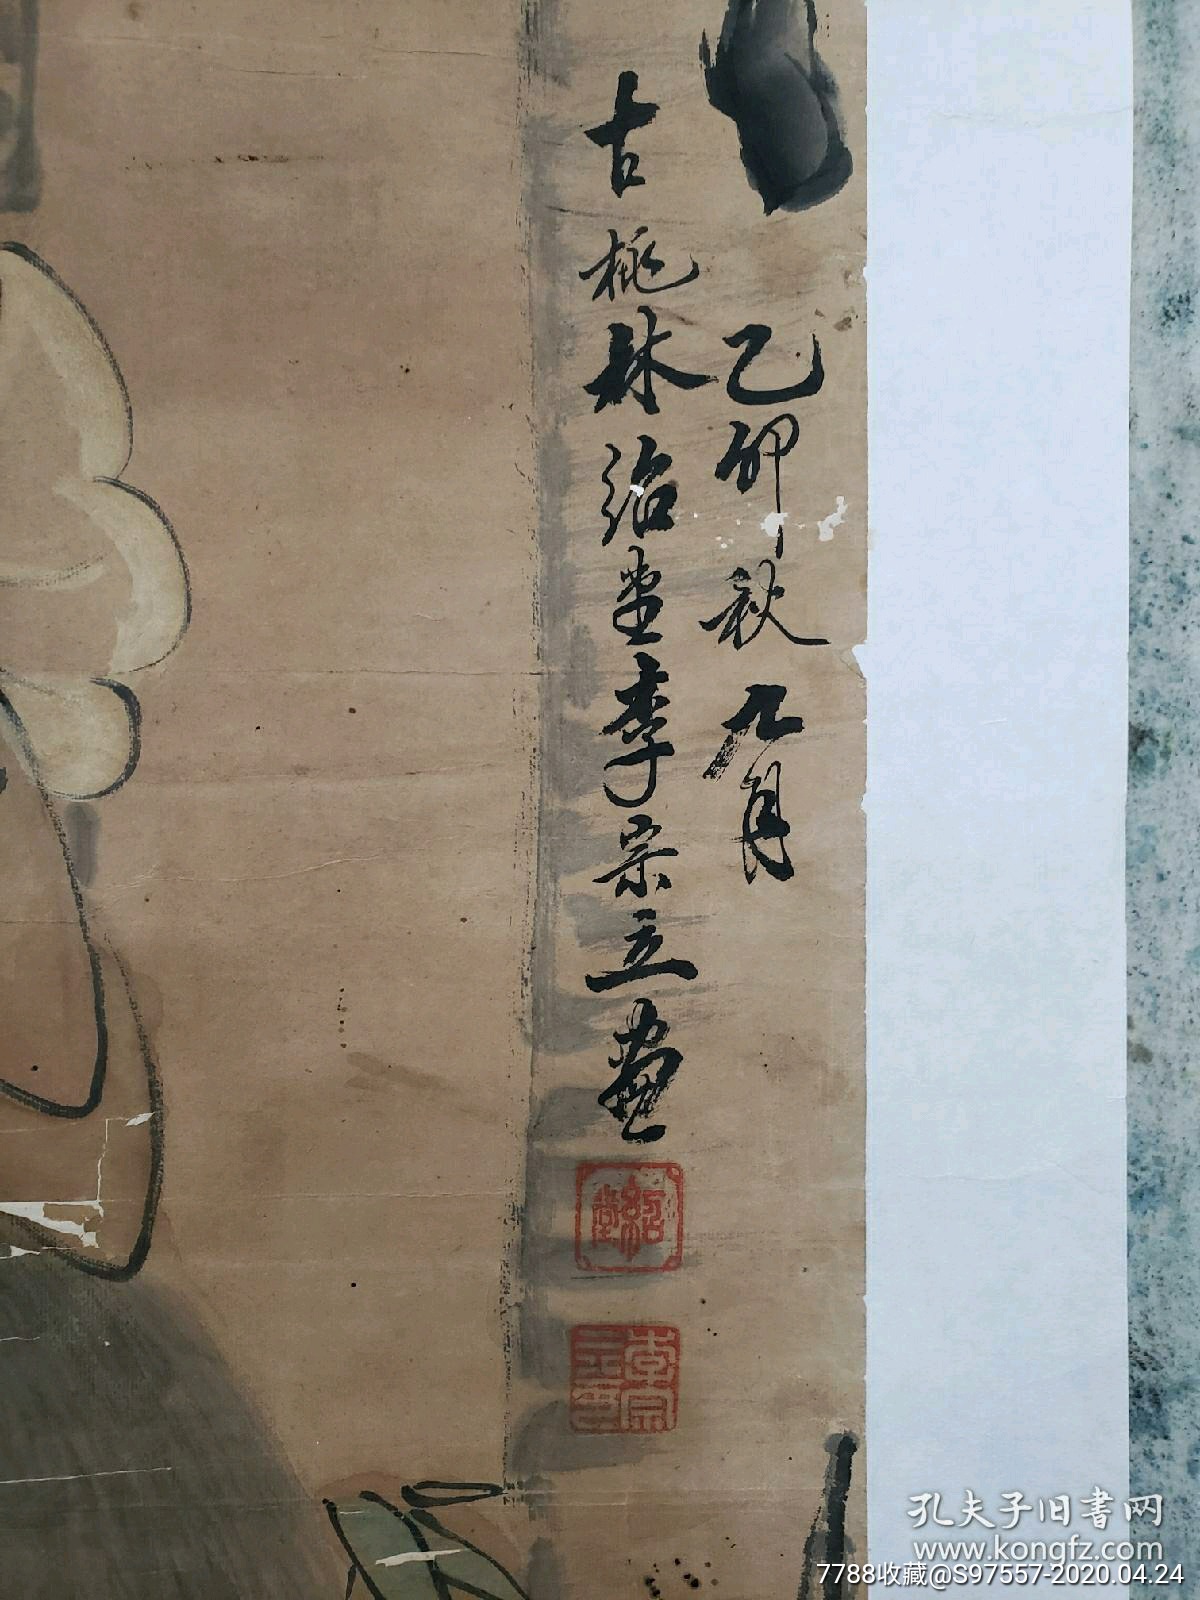 乙卯秋九月
古桃林紹堂李宗立畫
紹堂
李宗立画
孔夫子旧書网
www.kongfz.com
7788收藏@S97557-2020.04.24